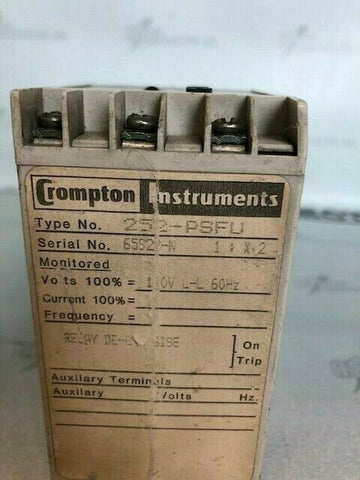 Crompton Instruments
Type No. 252-PSFU
Serial No.
Monitored
Volts 100% = L-L 60Hz
Current 100%=
Frequency =
RELAY On
Trip
Auxilary Terminals
Auxilary Volts Hz.